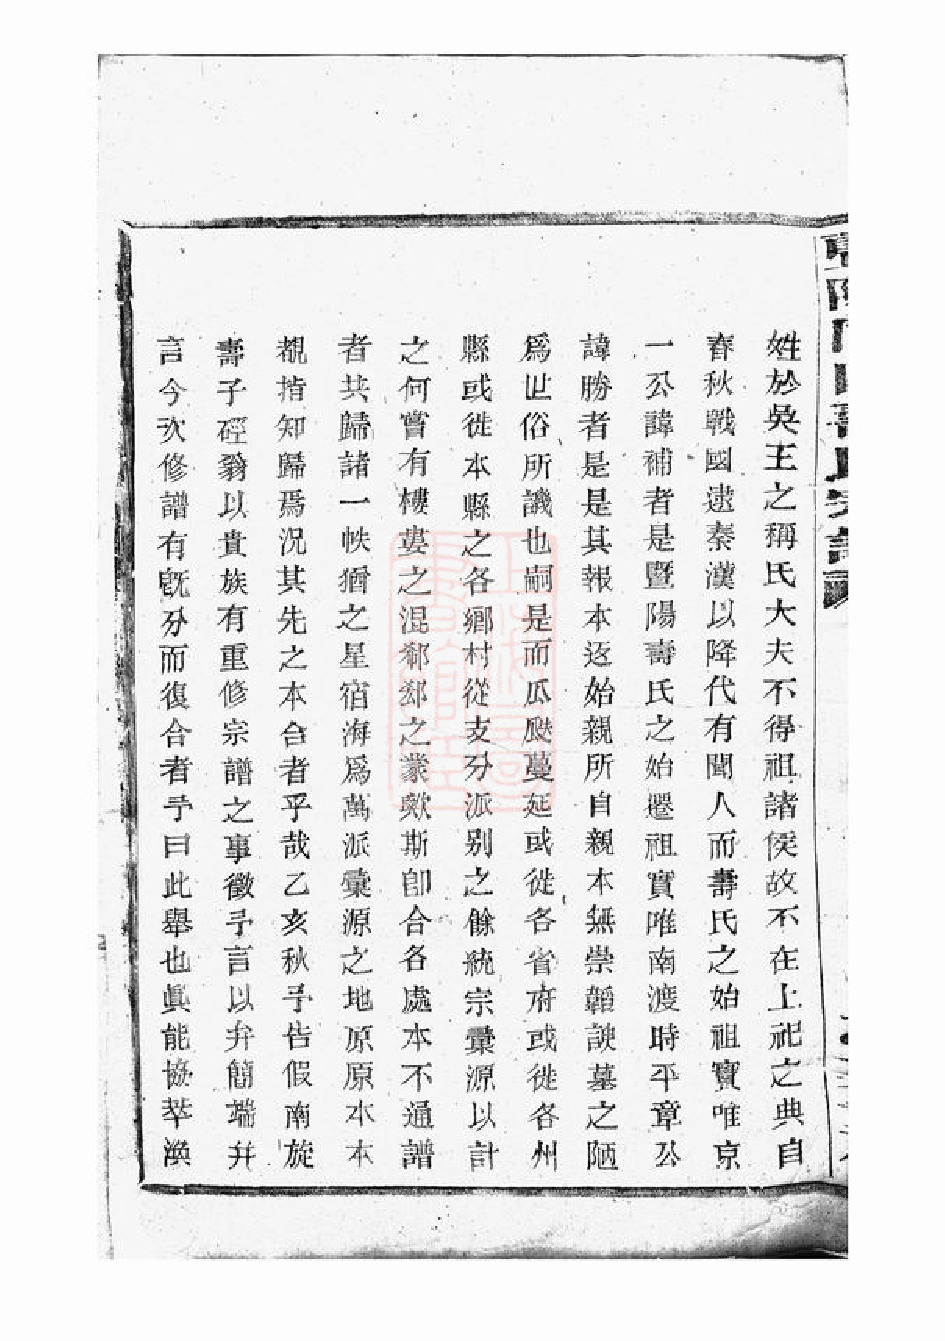 姓於吳王之稱氏大夫不得祖諸侯故不在上祀之典自
春秋戰國逮秦漢以降代有聞人而壽氏之始祖實唯京
一公諱補者是曁陽壽氏之始遷祖實唯南渡時平章公
諱勝者是是其報本返始親所自親本無崇韜諛墓之陋
爲世俗所譏也嗣是而瓜瓞蔓延或徙各省府或徙各州
縣或徙本縣之各鄉村從支分派別之餘統宗彙源以計
之何嘗有樓婁之混郗郄之業歟斯卽合各處本不通譜
者共歸諸一帙猶之星宿海爲萬派彙源之地原原本本
覩指知歸焉況其先之本合者乎哉乙亥秋予告假南旋
壽子硜翁以貴族有重修宗譜之事徵予言以弁簡端幷
言今次修譜有旣分而復合者予曰此舉也眞能協萃渙